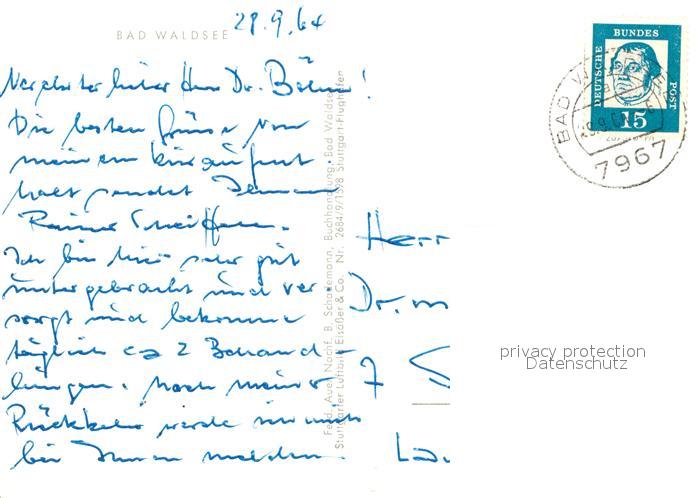 BAD WALDSEE
28.9.64
Verehrter lieber Herr Dr. Böhm!
Die besten Grüsse von
meinem Kuraufent-
halt sendet Ihnen
Rainer
Ich bin hier sehr gut
untergebracht und ver-
sorgt und bekomme
täglich ca 2 Behand-
lungen. Nach meiner
Rückkehr werde ich mich
bei Ihnen melden.
Ferd. Auer Nachf. B. Schademann, Buchhandlung, Bad Waldsee
Stuttgarter Luftbild Elsäßer & Co. Nr. 2684/9/153/8 Stuttgart-Flughafen
DEUTSCHE BUNDESPOST
15
BAD
7967
Herr
Dr. m
7
privacy protection
Datenschutz